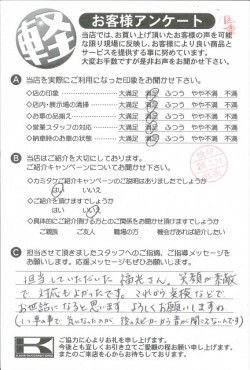 軽
お客様アンケート
当店では、お買い上げ頂いたお客様の声を可能
な限り現場に反映し、お客様により良い商品と
サービスを提供する事に努めています。
大変お手数ですが是非お声をお聞かせ下さい。
A 当店を実際にご利用になった印象をお聞かせ下さい。
◇店の印象 大満足 満足 ふつう やや不満 不満
◇店内・展示場の清掃 大満足 満足 ふつう やや不満 不満
◇お車の品揃え 大満足 満足 ふつう やや不満 不満
◇営業スタッフの対応 大満足 満足 ふつう やや不満 不満
◇納車時のお車の状態 大満足 満足 ふつう やや不満 不満
B 当店はご紹介を大切にしております。
ご紹介キャンペーンについてお聞かせ下さい。
◇カミタケご紹介キャンペーンのご説明はありましたでしょうか
はい いいえ
◇ご紹介を頂けますでしょうか
はい いいえ
◇具体的にご紹介頂ける方とのご関係をお聞かせ頂けますでしょうか
ご親族 ご友人 職場の方 機会があれば紹介したい
C 担当させて頂きましたスタッフへのご指摘、ご指導メッセージを
お願いします。応援メッセージもぜひお願いします。
担当していただいた さん、笑顔が素敵
で対応もよかったです。これから車検などで
お世話になると思います よろしくお願いしますね
ご協力に心よりお礼を申し上げます。
今後とも宜しくお引き立てご愛顧の程お願い申し上げます。
またのご来店を心からお待ちしております。